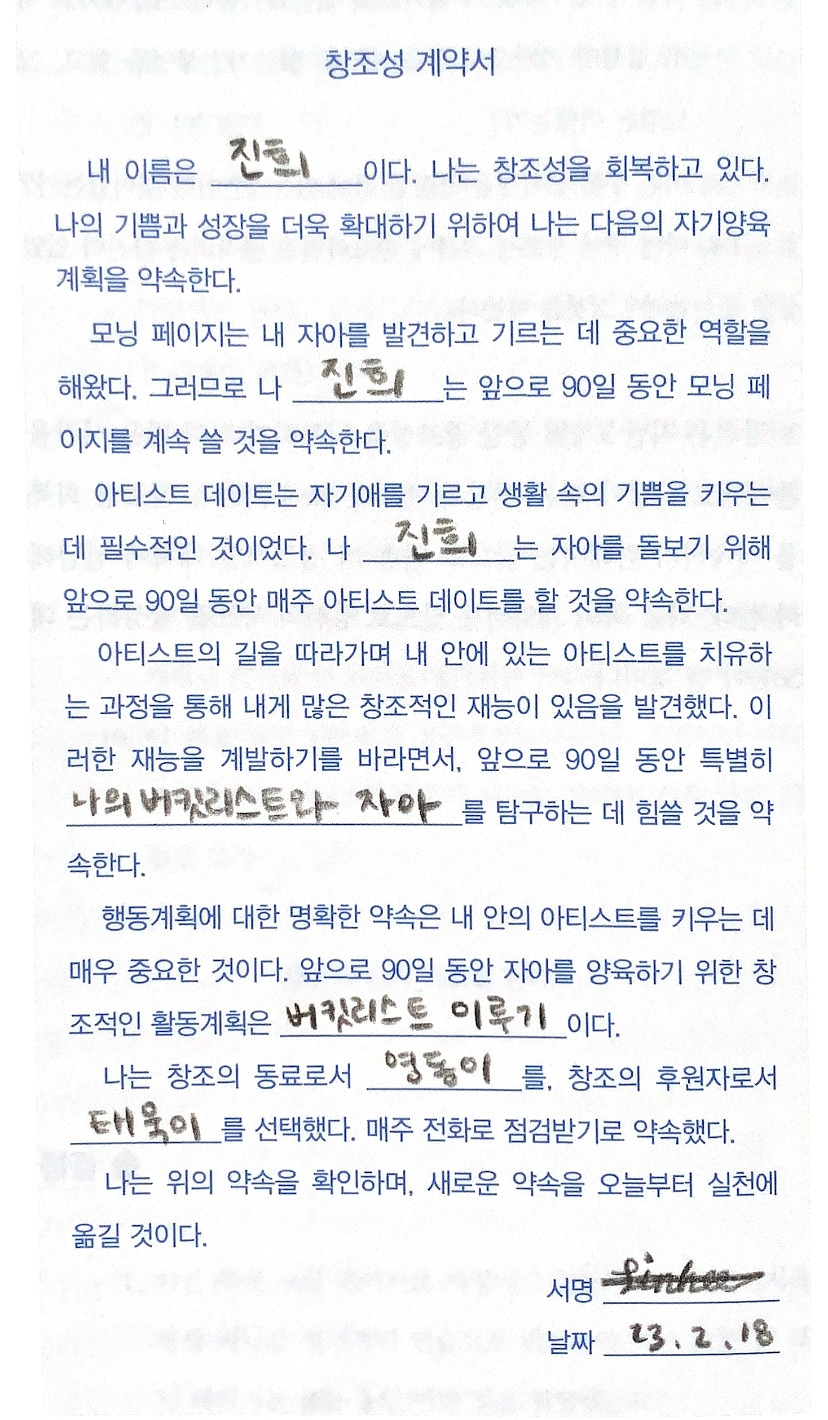 창조성 계약서
내 이름은 진희 이다. 나는 창조성을 회복하고 있다.
나의 기쁨과 성장을 더욱 확대하기 위하여 나는 다음의 자기양육
계획을 약속한다.
모닝 페이지는 내 자아를 발견하고 기르는 데 중요한 역할을
해왔다. 그러므로 나 진희 는 앞으로 90일 동안 모닝 페
이지를 계속 쓸 것을 약속한다.
아티스트 데이트는 자기애를 기르고 생활 속의 기쁨을 키우는
데 필수적인 것이었다. 나 진희 는 자아를 돌보기 위해
앞으로 90일 동안 매주 아티스트 데이트를 할 것을 약속한다.
아티스트의 길을 따라가며 내 안에 있는 아티스트를 치유하
는 과정을 통해 내게 많은 창조적인 재능이 있음을 발견했다. 이
러한 재능을 계발하기를 바라면서, 앞으로 90일 동안 특별히
나의 버킷리스트와 자아 를 탐구하는 데 힘쓸 것을 약
속한다.
행동계획에 대한 명확한 약속은 내 안의 아티스트를 키우는 데
매우 중요한 것이다. 앞으로 90일 동안 자아를 양육하기 위한 창
조적인 활동계획은 버킷리스트 이루기 이다.
나는 창조의 동료로서 영동이 를, 창조의 후원자로서
태욱이 를 선택했다. 매주 전화로 점검받기로 약속했다.
나는 위의 약속을 확인하며, 새로운 약속을 오늘부터 실천에
옮길 것이다.
서명 Jinhee
날짜 23.2.18